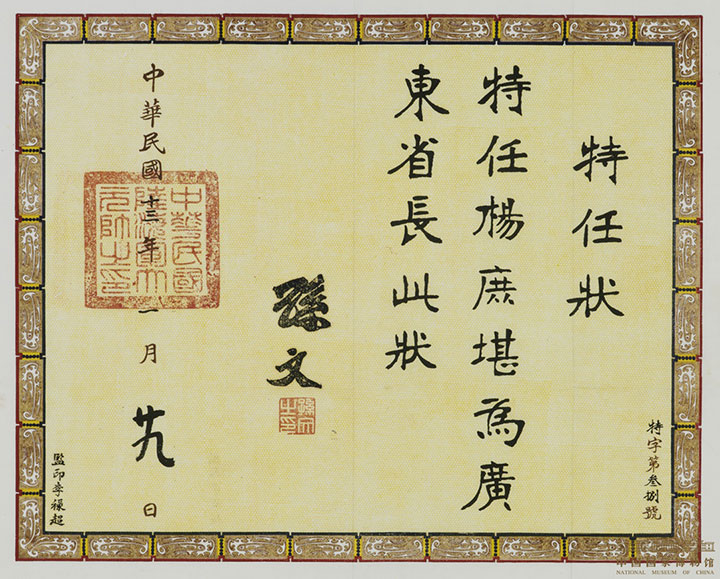 特任狀
特任楊庶堪爲廣
東省長此狀
孫文
孫文之印
中華民國十三年一月廿九日
中華民國陸海軍大元帥之印
監印李祿超
特字第叁捌號
中国国家博物馆
NATIONAL MUSEUM OF CHINA